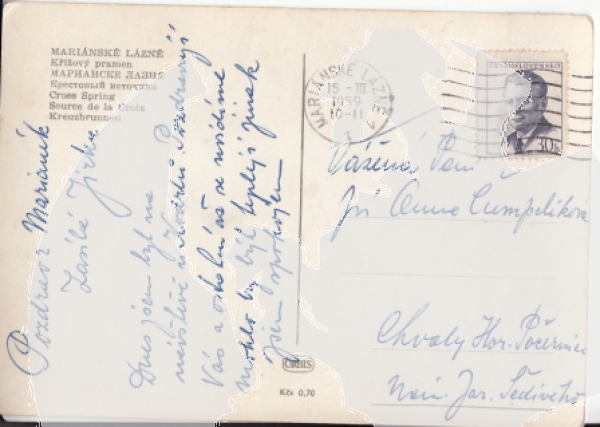 MARIÁNSKÉ LÁZNĚ
Křížový pramen
МАРИАНСКЕ ЛАЗНЕ
Крестовый источник
Cross Spring
Source de la Croix
Kreuzbrunnen
Pozdrav z Mariánik
Zasílá Jirka
Dnes jsem byl na
návštěvě u Pozdravují
Vás a až se uvidíme
Mohlo by být teplejí jinak
jsem spokojen
ORBIS
Kčs 0,70
MARIÁNSKÉ LÁZNĚ
15 -III
1959
10-11
ČESKOSLOVENSKO
30h
Vážená Paní
Anna Cumpelíková
Chvaly Hor. Počernice
Nám. Jar. Šedivého